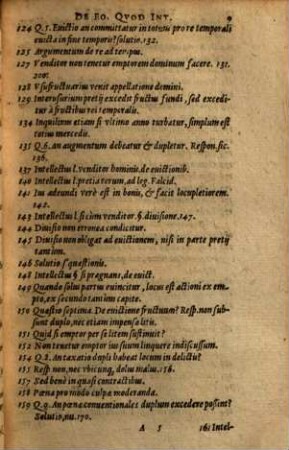 DE EO, QVOD INT. 9
124 Q. 5. Euictio an committatur in totum pro re temporali
euicta in fine temporis? solutio. 132.
125 Argumentum de re ad tempus.
127 Venditor non tenetur emptorem dominum facere. 131.
200.
128 Vsufructuarius venit appellatione domini.
129 Interusurium pretij excedit fructus fundi, sed exceditur
à fructibus rei temporalis.
134 Inquilinus etiam si vltimo anno turbatur, simplum est
totius mercedis.
135 Q. 6. an augmentum debeatur & dupletur. Respon. sic.
136.
137 Intellectus l. venditor hominis. de euictionib.
140 Intellectus l. pretia rerum, ad leg. Falcid.
141 Ius adeundi verè est in bonis, & facit locupletiorem.
142.
143 Intellectus l. si cùm venditor. §. diuisione. 147.
144 Diuisio non erronea condicitur.
145 Diuisio non obligat ad euictionem, nisi in parte pretij
tantùm.
146 Solutio quæstionis.
148 Intellectus § si prægnans, de euict.
149 Quando solùm partus euincitur, locus est actioni ex empto,
ex secundo tantùm capite.
150 Quæstio septima. De euictione fructuum? Resp. non subsunt
duplo, nec etiam impensa litis.
151 Quid si emptor per se litem sustinuit?
152 Non tenetur emptor iussium linquere indiscussum.
154 Q. 8. An taxatio dupli habeat locum in delictis?
155 Resp. non, nec vbicunq; dolus malus. 156.
157 Sed benè in quasi contractibus.
158 Pœna pro modo culpæ moderanda.
159 Q. 9. An pœnæ conuentionales duplum excedere possint?
Solutio, nu. 170.
A 5 161 Intel-